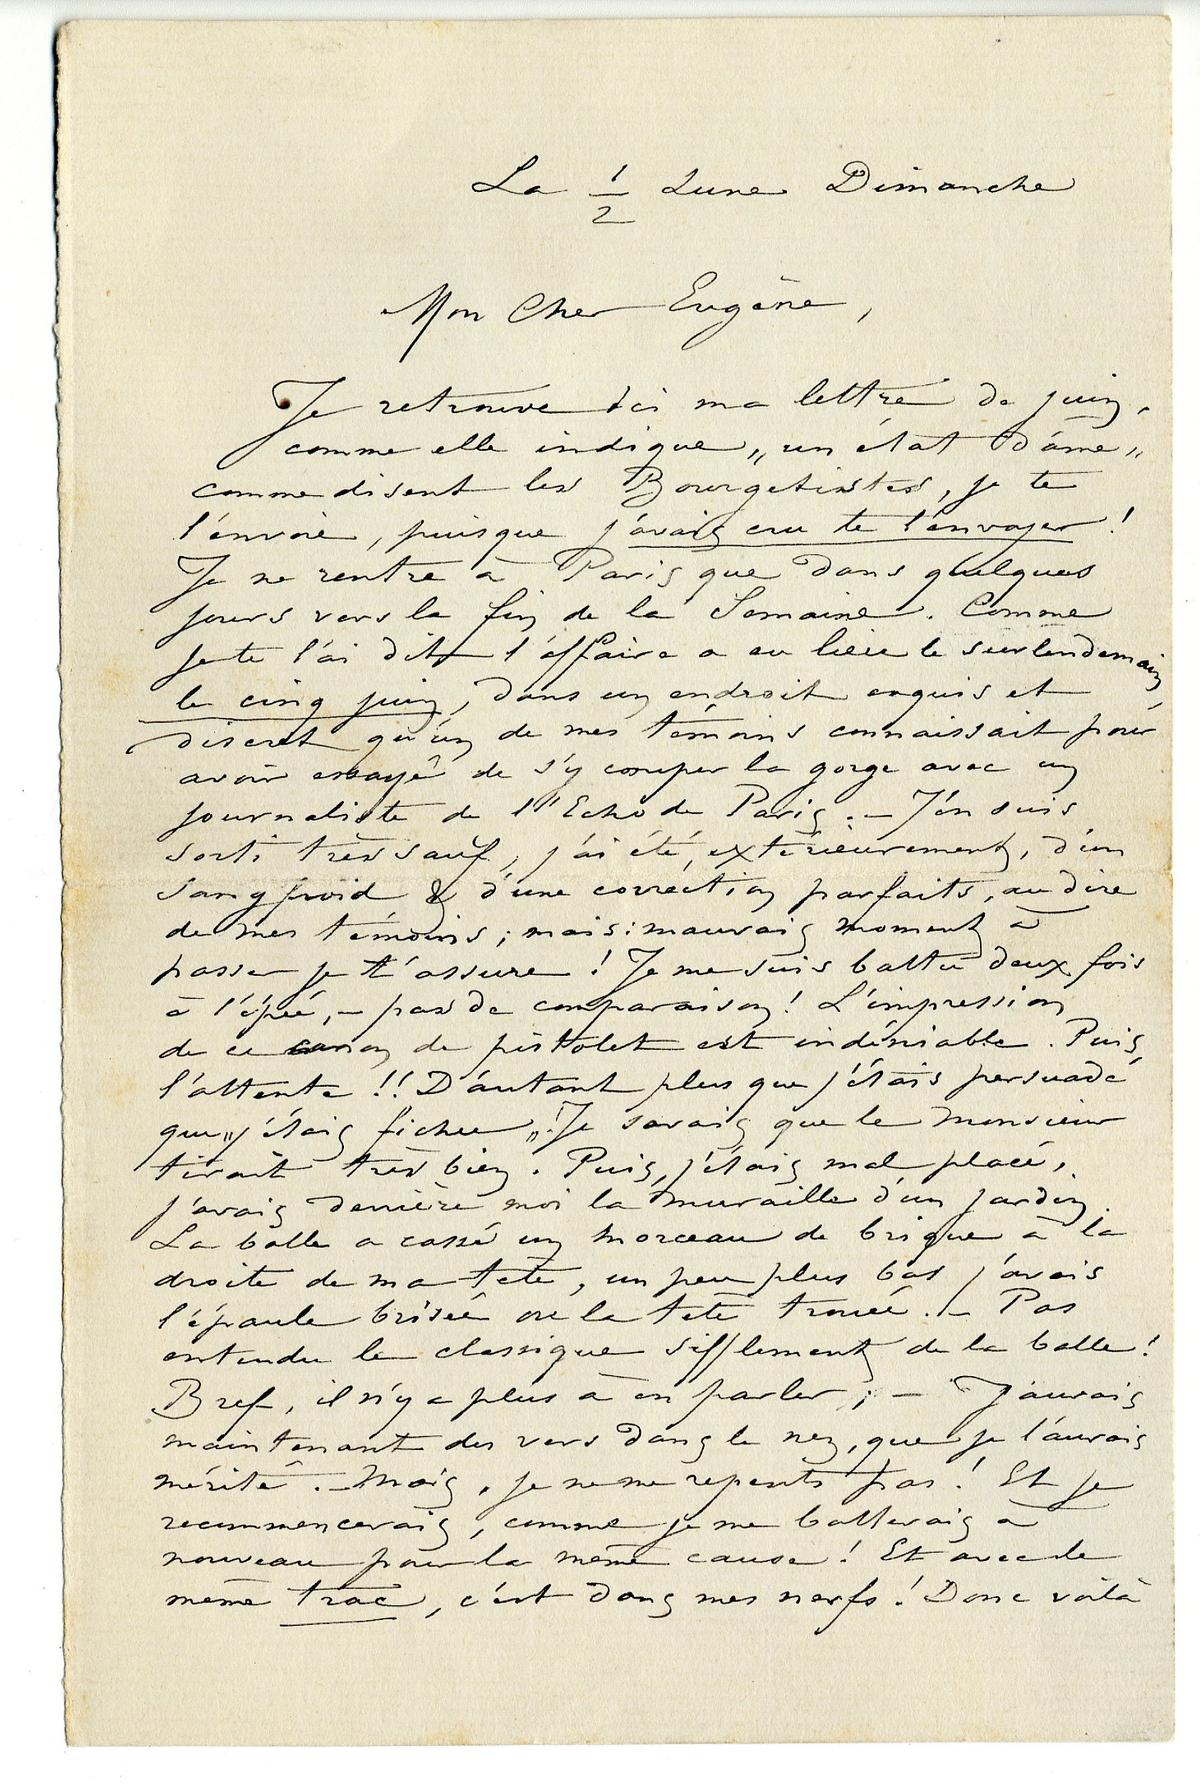 La 1/2 Lune Dimanche
Mon Cher Eugène,
Je retrouve ici ma lettre de juin,
comme elle indique „un état d'âme„
comme disent les Bourgetistes, je te
l'envoie, puisque j'avais cru te l'envoyer !
Je ne rentre à Paris que dans quelques
jours vers la fin de la Semaine. Comme
je te l'ai dit l'affaire a eu lieu le surlendemain
le cinq juin, dans un endroit exquis et
discret qu'un de mes témoins connaissait pour
avoir essayé de s'y couper la gorge avec un
journaliste de l'Echo de Paris. – J'en suis
sorti très sauf, j'ai été, extérieurement, d'un
sang froid & d'une correction parfaits, au dire
de mes témoins ; mais : mauvais moment à
passer je t'assure ! Je me suis battu deux fois
à l'épée, – pas de comparaison ! L'impression
de ce canon de pistolet est indéniable. Puis
l'attente !! D'autant plus que j'étais persuadé
que „j'étais fichu„! Je savais que le Monsieur
tirait très bien. Puis, j'étais mal placé,
j'avais derrière moi la muraille d'un jardin.
La balle a cassé un morceau de brique à la
droite de ma tête, un peu plus bas j'avais
l'épaule brisée ou la tête trouée. – Pas
entendu le classique sifflement de la balle !
Bref, il n'y a plus à en parler ; – J'aurais
maintenant des vers dans le nez, que je l'aurais
mérité. – Mais, je ne me repents pas ! Et je
recommencerais, comme je me batterais à
nouveau pour la même cause ! Et avec le
même trac, c'est dans mes nerfs ! Donc voilà